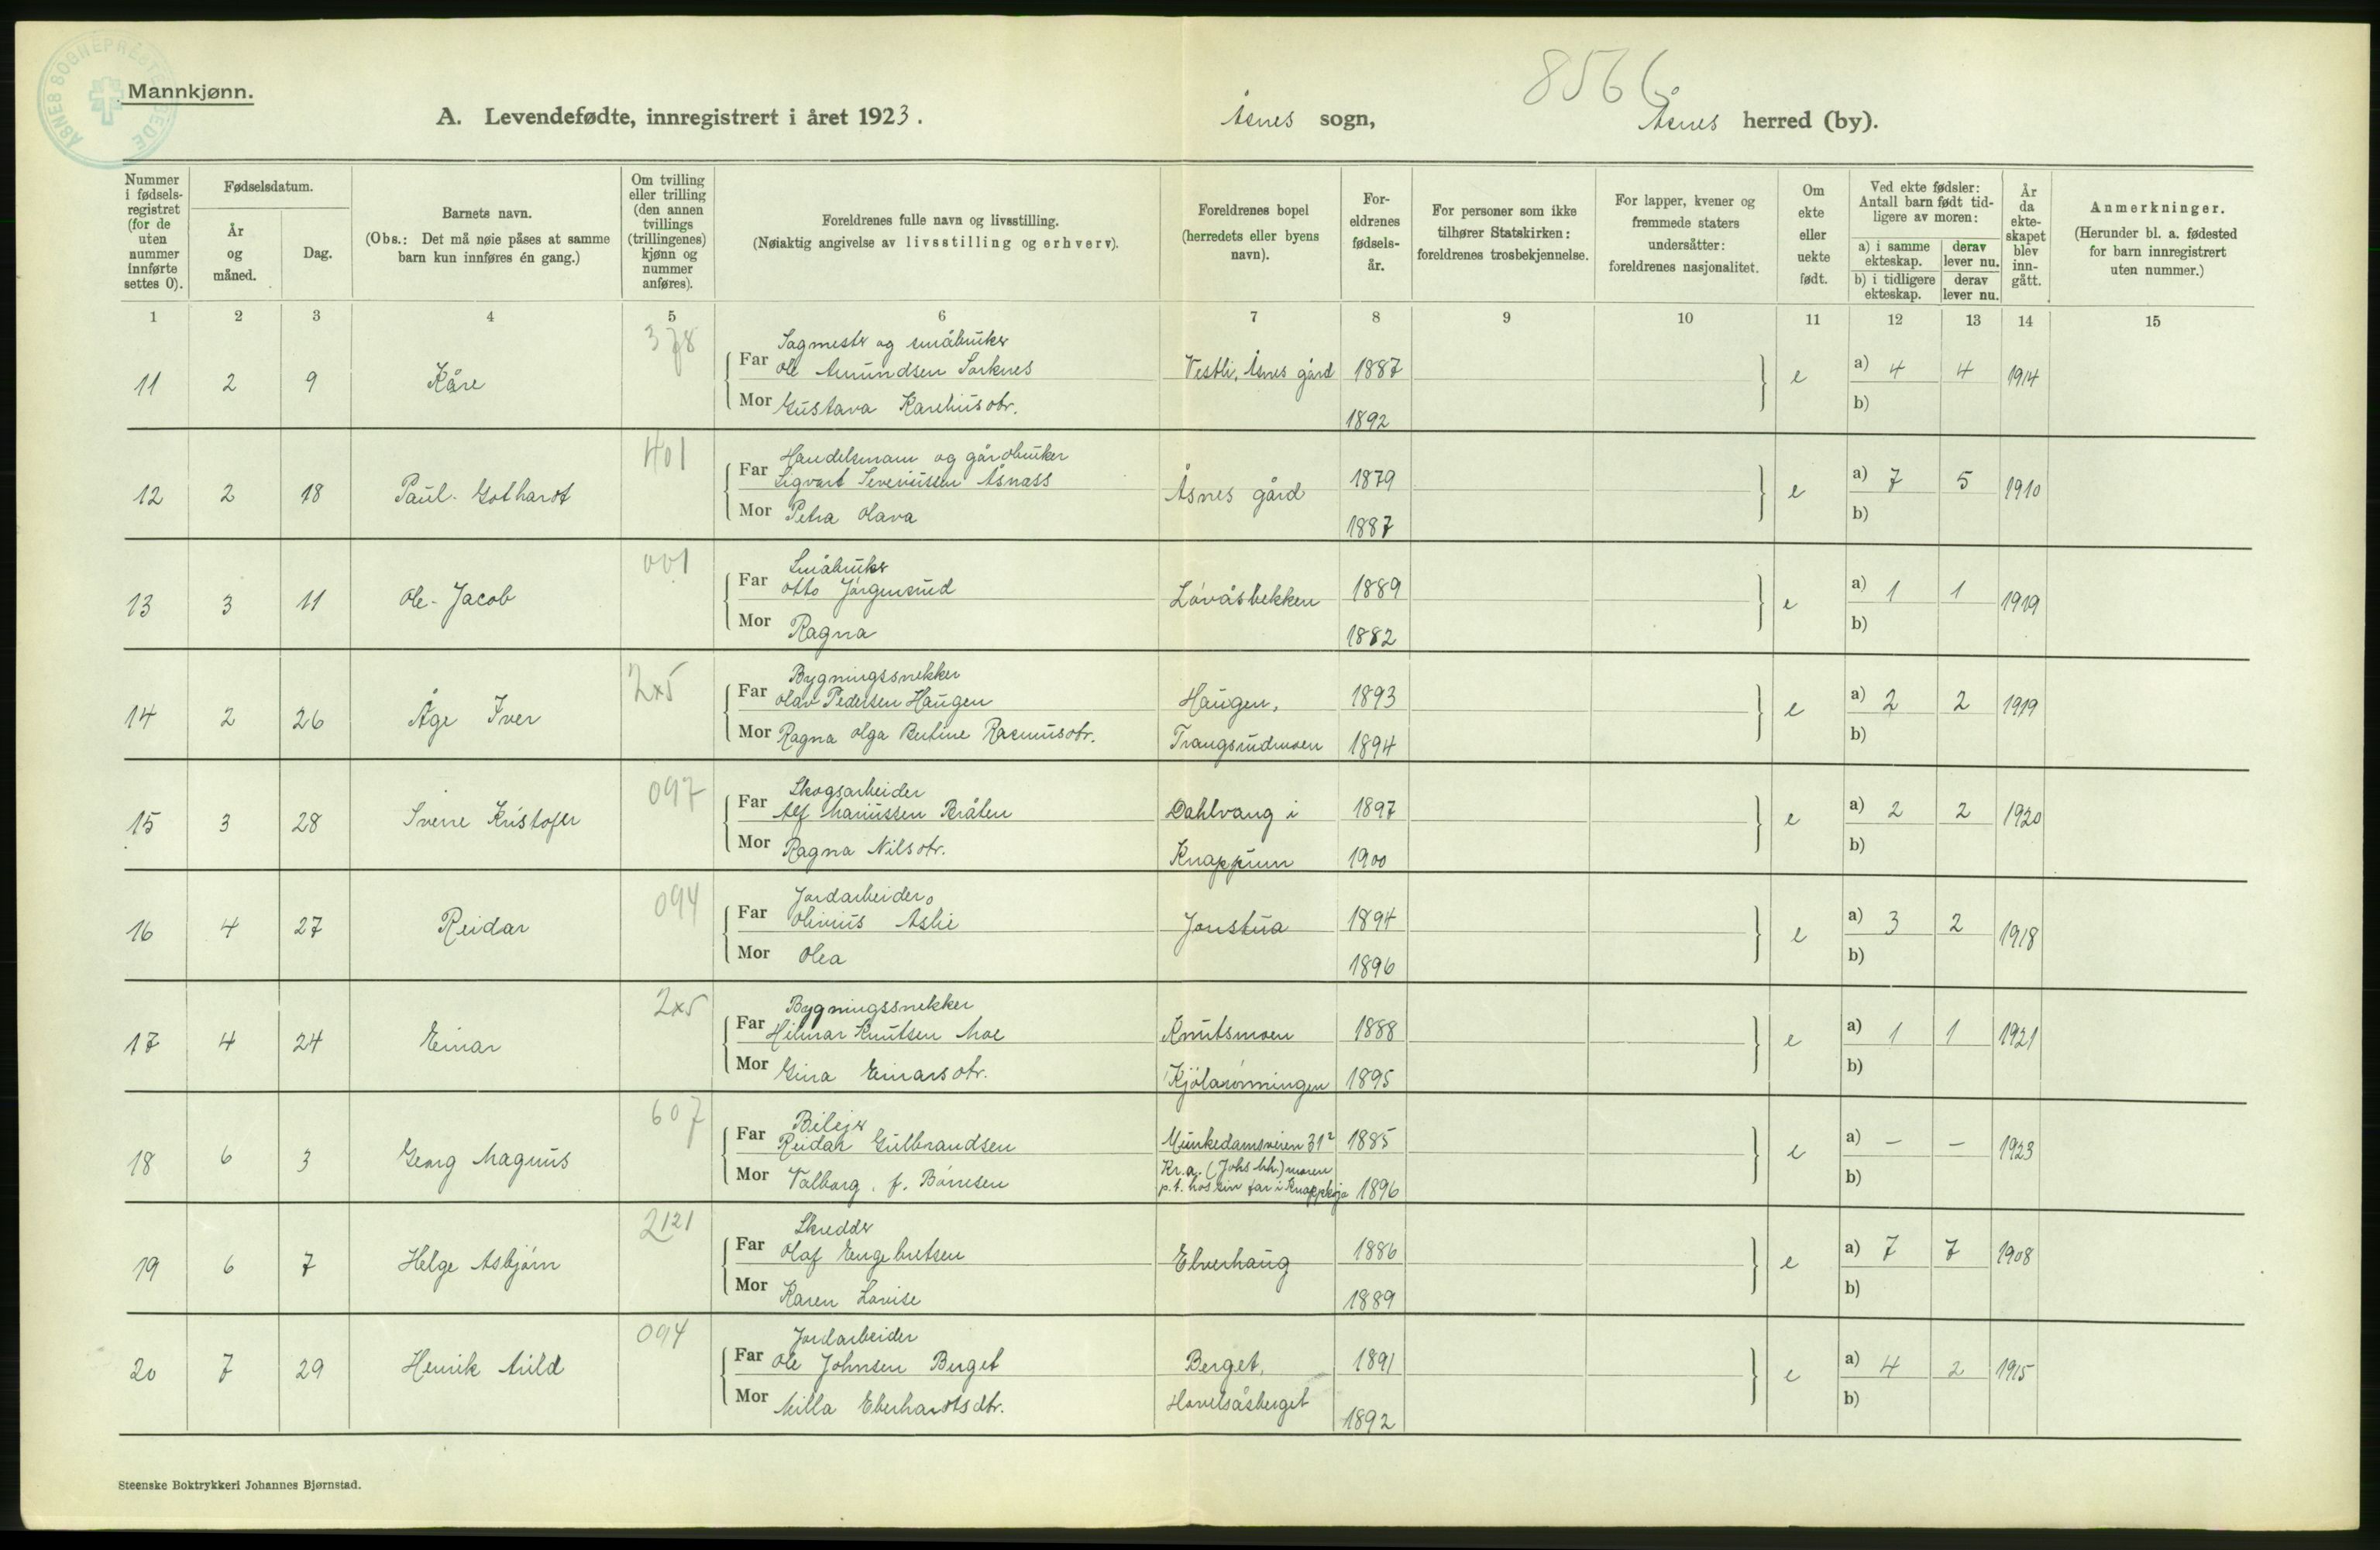 ÅSNES SOGNEPRESTEMBEDE
Mannkjønn.
8566
A. Levendefødte, innregistrert i året 1923. Åsnes sogn, Åsnes herred (by).
Nummer i fødsels-registret (for de uten nummer innførte settes 0).
Fødselsdatum.
År og måned.
Dag.
Barnets navn.
(Obs.: Det må nøie påses at samme barn kun innføres én gang.)
Om tvilling eller trilling (den annen tvillings (trillingenes) kjønn og nummer anføres).
Foreldrenes fulle navn og livsstilling.
(Nøiaktig angivelse av livsstilling og erhverv).
Foreldrenes bopel (herredets eller byens navn).
For-eldrenes fødsels-år.
For personer som ikke tilhører Statskirken: foreldrenes trosbekjennelse.
For lapper, kvener og fremmede staters undersåtter: foreldrenes nasjonalitet.
Om ekte eller uekte født.
Ved ekte fødsler: Antall barn født tid-ligere av moren:
a) i samme ekteskap. derav lever nu.
b) i tidligere ekteskap. derav lever nu.
År da ekte-skapet blev inn-gått.
Anmerkninger.
(Herunder bl. a. fødested for barn innregistrert uten nummer.)
1 2 3 4 5 6 7 8 9 10 11 12 13 14 15
378
Sagmester og småbruker
11 2 9 Kåre Far Ole Amundsen Sorknes Vestli, Åsnes gård 1887 e a) 4 4 1914
Mor Gustava Kareliusdtr. 1892 b)
401
Handelsmann og gårdbruker
12 2 18 Paul-Gothard Far Sigvart Severinsen Åsnæss Åsnes gård 1879 e a) 7 5 1910
Mor Petra Olava 1887 b)
001
Småbruker
13 3 11 Ole-Jacob Far Otto Jörgensrud Lövåsbekken 1889 e a) 1 1 1919
Mor Ragna 1882 b)
2x5
Bygningssnekker
14 2 26 Åge Iver Far Olav Pedersen Haugen Haugen, 1893 e a) 2 2 1919
Mor Ragna Olga Bertine Rasmusdtr. Trangsrudmoen 1894 b)
097
Skogsarbeider
15 3 28 Sverre Kristofer Far Alf Mariussen Bråten Dahlvang i 1897 e a) 2 2 1920
Mor Ragna Nilsdtr. Knappum 1900 b)
094
Jordarbeider
16 4 27 Reidar Far Olinius Aslie Jonstua 1894 e a) 3 2 1918
Mor Olea 1896 b)
2x5
Bygningssnekker
17 4 24 Einar Far Hilmar Knutsen Moe Knutsmoen 1888 e a) 1 1 1921
Mor Gina Einarsdtr. Kjölarönningen 1895 b)
607
Bileier
18 6 3 Georg Magnus Far Reidar Gulbrandsen Munkedamsveien 31² 1885 e a) – – 1923
Kr.a. (Johs mh.) moren
Mor Valborg, f. Börresen p.t. hos sin far i Knappskoja 1896 b)
2121
Skredder
19 6 7 Helge Asbjörn Far Olaf Engebretsen Elverhaug 1886 e a) 7 7 1908
Mor Karen Lovise 1889 b)
094
Jordarbeider
20 7 29 Henrik Arild Far Ole Johnsen Berget Berget, 1891 e a) 4 2 1915
Mor Milla Eberhardtsdtr. Hovelsåsberget 1892 b)
Steenske Boktrykkeri Johannes Bjørnstad.